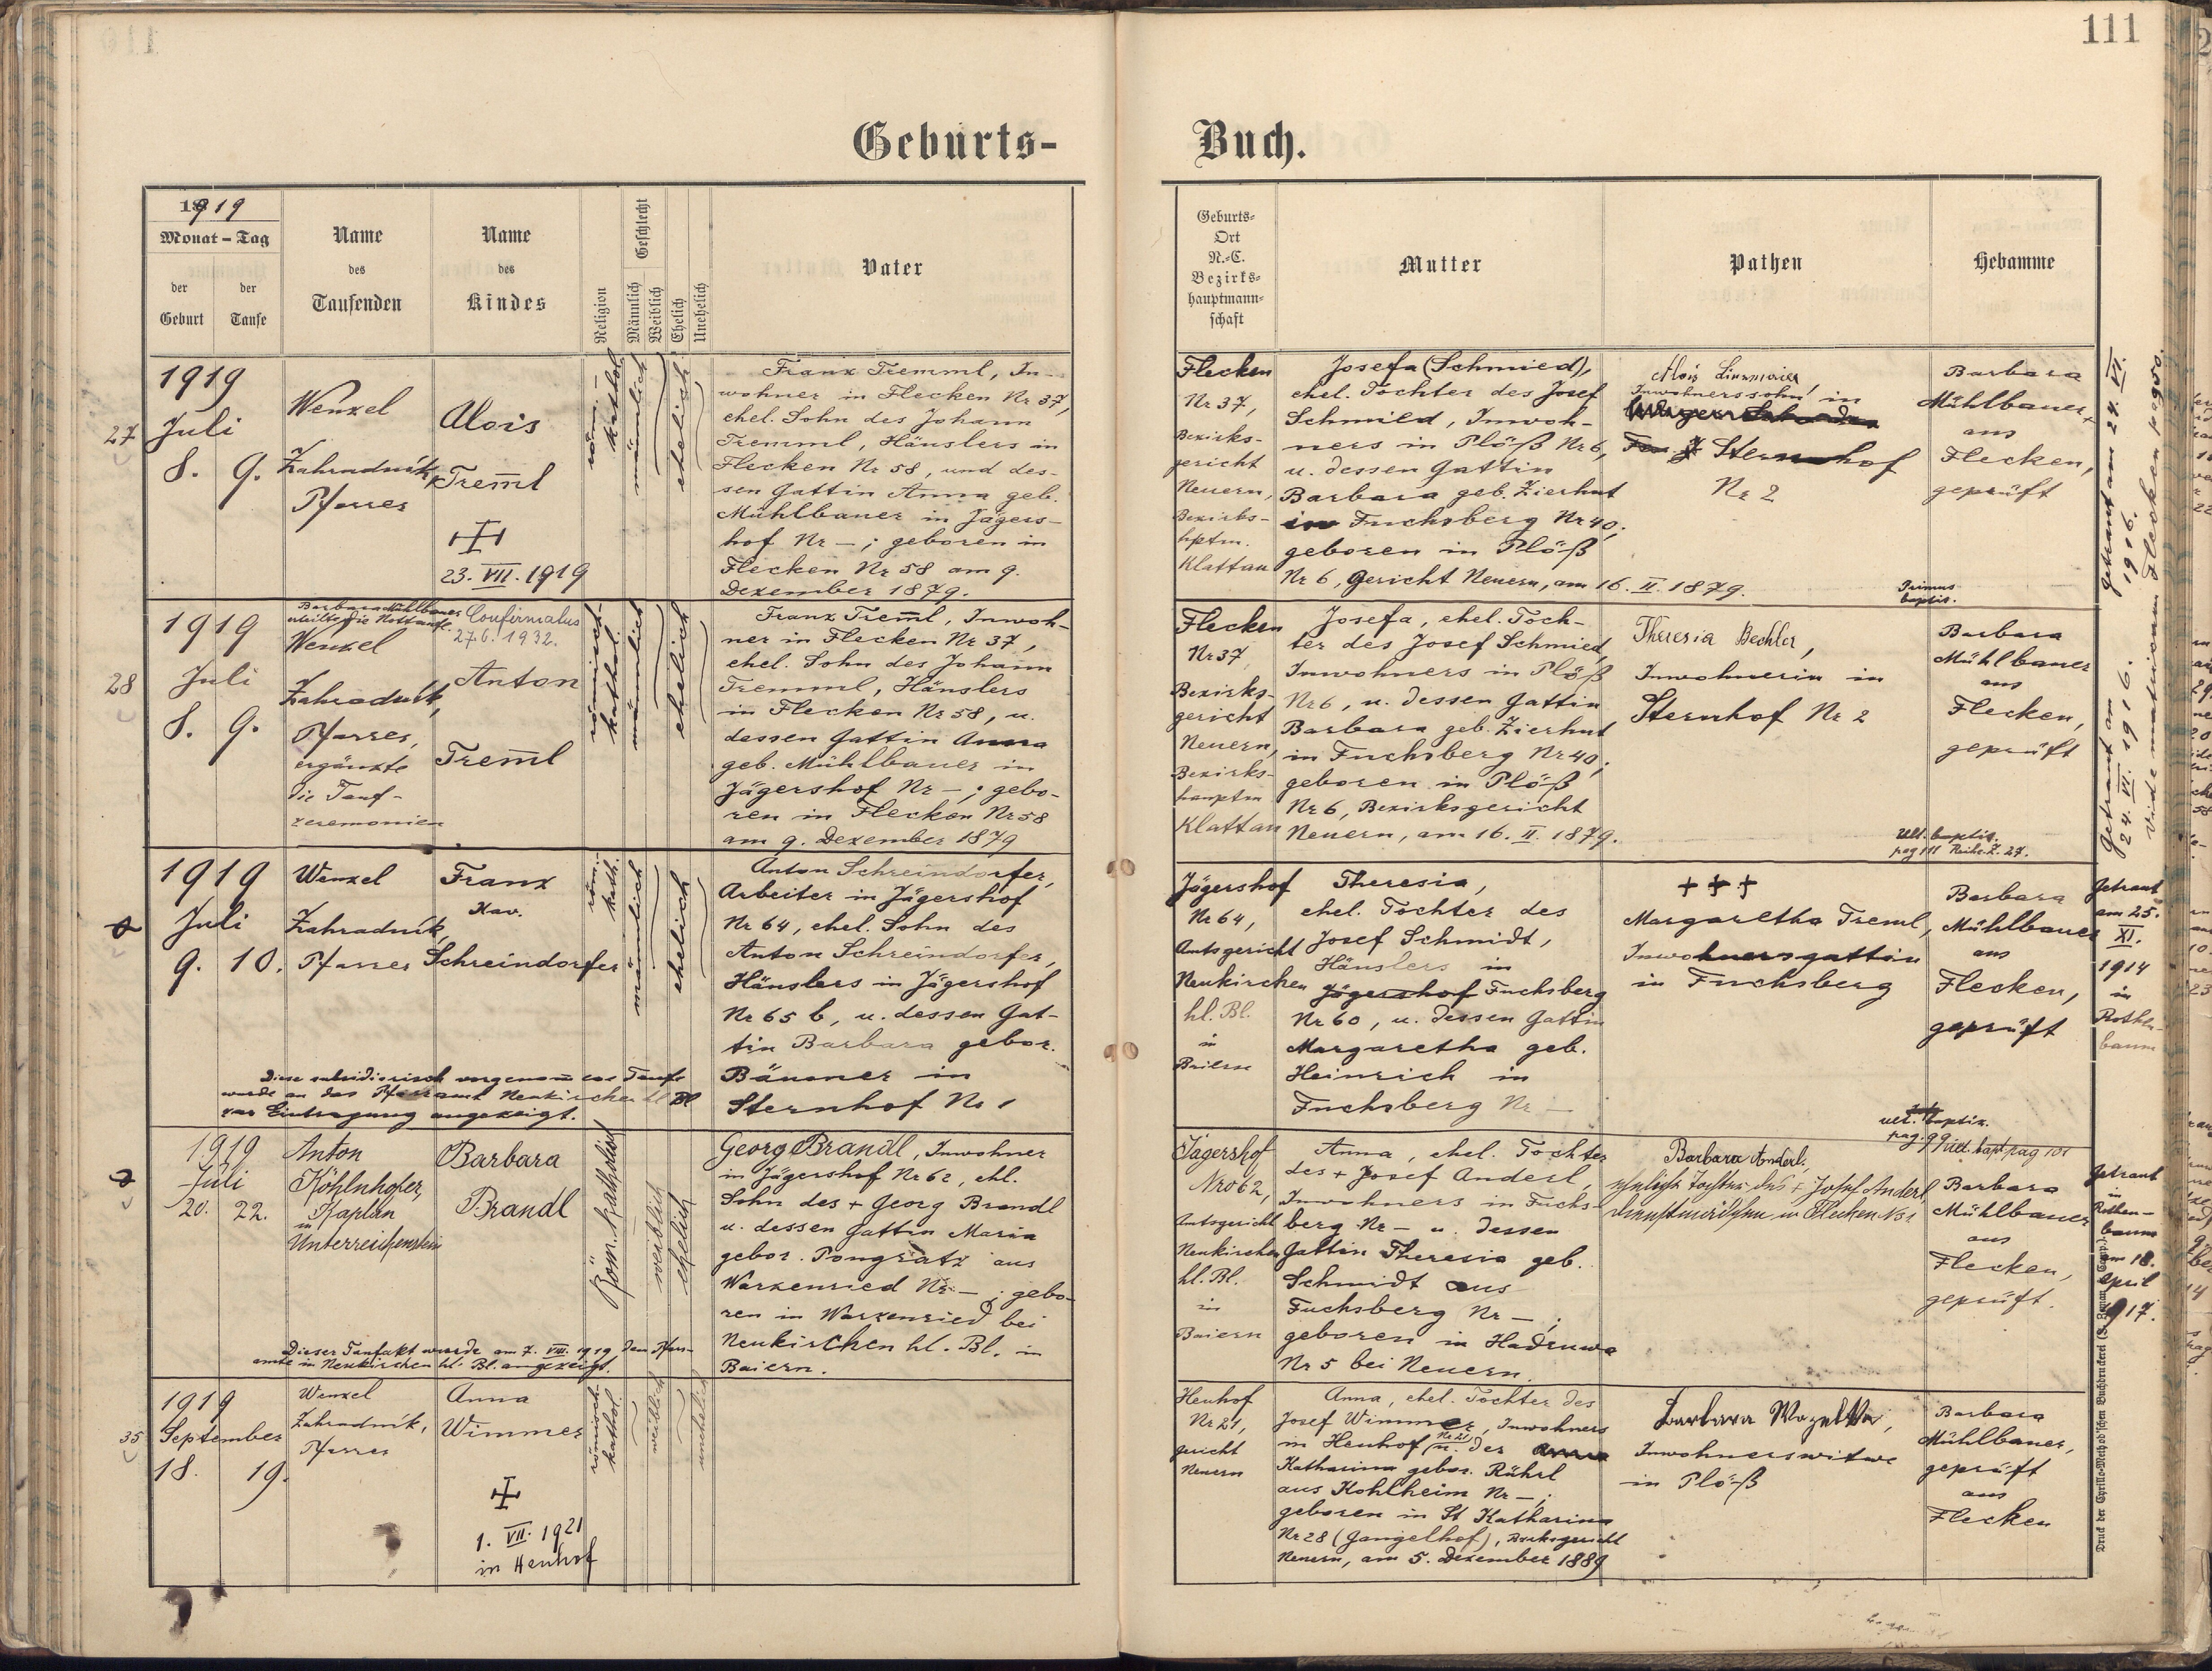 111
Geburts-
Buch.
1919
Monat - Tag
der Geburt
der Taufe
Name
des
Taufenden
Name
des
Kindes
Religion
Geschlecht
Männlich
Weiblich
Ehelich
Unehelich
Vater
Geburts-
Ort
N.-C.
Bezirks-
hauptmann-
schaft
Mutter
Pathen
Hebamme
27
1919
Juli
8. 9.
Wenzel
Zahradník,
Pfarrer
Alois
Trem̅l
23. VII. 1919
röm.-
kathol.
männlich
ehelich
Franz Tremml, In-
wohner in Flecken Nr 37,
ehel. Sohn des Johann
Tremml, Häuslers in
Flecken Nr 58, und des-
sen Gattin Anna geb.
Mühlbauer in Jägers-
hof Nr —; geboren in
Flecken Nr 58 am 9.
Dezember 1879.
Flecken
Nr 37,
Bezirks-
gericht
Neuern,
Bezirks-
hptm.
Klattau
Josefa (Schmied),
ehel. Tochter des Josef
Schmied, Inwoh-
ners in Plöß Nr 6,
u. dessen Gattin
Barbara geb. Zierhut
in Fuchsberg Nr 40;
geboren in Plöß
Nr 6, Gericht Neuern, am 16. II. 1879.
Alois
Inwohnerssohn in
Sternhof
Nr 2
Barbara
Mühlbauer,
aus
Flecken,
geprüft
Primus
baptis.
Getraut am 24. VI.
1916.
28
1919
Juli
8. 9.
Barbara Mühlbauer
erteilte die Nottaufe.
Wenzel
Zahradník,
Pfarrer,
ergänzte
die Tauf-
zeremonien
Confirmatus
27.6.1932.
Anton
Trem̅l
römisch-
kathol.
männlich
ehelich
Franz Trem̅l, Inwoh-
ner in Flecken Nr 37,
ehel. Sohn des Johann
Tremml, Häuslers
in Flecken Nr 58, u.
dessen Gattin Anna
geb. Mühlbauer in
Jägershof Nr —; gebo-
ren in Flecken Nr 58
am 9. Dezember 1879
Flecken
Nr 37
Bezirks-
gericht
Neuern,
Bezirks-
hauptm
Klattau
Josefa, ehel. Toch-
ter des Josef Schmied,
Inwohners in Plöß
Nr 6, u. dessen Gattin
Barbara geb. Zierhut
in Fuchsberg Nr 40;
geboren in Plöß
Nr 6, Bezirksgericht
Neuern, am 16. II. 1879.
Theresia Bechler,
Inwohnerin in
Sternhof Nr 2
Barbara
Mühlbauer
aus
Flecken,
geprüft
Ult. baptis.
pag 111 Reihe.Z. 27.
Getraut am
24. VI. 1916.
Vide matricam Flecken pag 50.
1919
Juli
9. 10.
Wenzel
Zahradník,
Pfarrer
Franz
Xav.
Schreindorfer
röm.
kath.
männlich
ehelich
Diese subsidiarisch vorgenom̅ene Taufe
wurde an das Pfarramt Neukirchen hl Bl
zur Eintragung angezeigt.
Anton Schreindorfer,
Arbeiter in Jägershof
Nr 64, ehel. Sohn des
Anton Schreindorfer,
Häuslers in Jägershof
Nr 65 b, u. dessen Gat-
tin Barbara gebor.
Bäumer in
Sternhof Nr 1
Jägershof
Nr 64,
Amtsgericht
Neukirchen
hl. Bl.
in
Baiern
Theresia,
ehel. Tochter des
Josef Schmidt,
Häuslers in
Jägershof Fuchsberg
Nr 60, u. dessen Gattin
Margaretha geb.
Heinrich in
Fuchsberg Nr —
+ + +
Margaretha Treml,
Inwohnersgattin
in Fuchsberg
Barbara
Mühlbauer
aus
Flecken,
geprüft
ult. baptiz.
pag. 99
Getraut
am 25.
XI.
1914
in
Rothen-
baum
1919
Juli
20. 22.
Anton
Köhlnhofer,
Kaplan
in
Unterreichenstein
Barbara
Brandl
Röm. katholisch
weiblich
ehelich
Dieser Taufakt wurde am 7. VIII. 1919 dem Pfarr-
amte in Neukirchen hl. Bl. angezeigt.
Georg Brandl, Inwohner
in Jägershof Nr 62, ehl.
Sohn des + Georg Brandl
u. dessen Gattin Maria
gebor. Pongratz aus
Warzenried Nr —; gebo-
ren in Warzenried bei
Neukirchen hl. Bl. in
Baiern.
Jägershof
Nro 62,
Amtsgericht
Neukirchen
hl. Bl.
in
Baiern
Anna, ehel. Tochter
des + Josef Anderl,
Inwohners in Fuchs-
berg Nr — u. dessen
Gattin Theresia geb.
Schmidt aus
Fuchsberg Nr —;
geboren in Hadruwa
Nr 5 bei Neuern.
Barbara Anderl,
eheliche Tochter des + Josef Anderl
Dienstmädchen in Flecken No 1
ult. bapt pag 101
Barbara
Mühlbauer
aus
Flecken,
geprüft.
Getraut
in
Rothen-
baum
am 18.
April
917.
35
1919
September
18. 19.
Wenzel
Zahradník,
Pfarrer
Anna
Wimmer
1. VII. 1921
in Heuhof
römisch-
kathol.
weiblich
unehelich
Heuhof
Nr 21,
Gericht
Neuern
Anna, ehel. Tochter des
Josef Wimmer, Inwohners
in Heuhof Nr 21 u. der
Katharina gebor. Rührl
aus Kohlheim Nr —;
geboren in St Katharina
Nr 28 (Gangelhof), Bezirksgericht
Neuern, am 5. Dezember 1889
Barbara
Inwohnerswitwe
in Plöß
Barbara
Mühlbauer,
geprüft
aus
Flecken